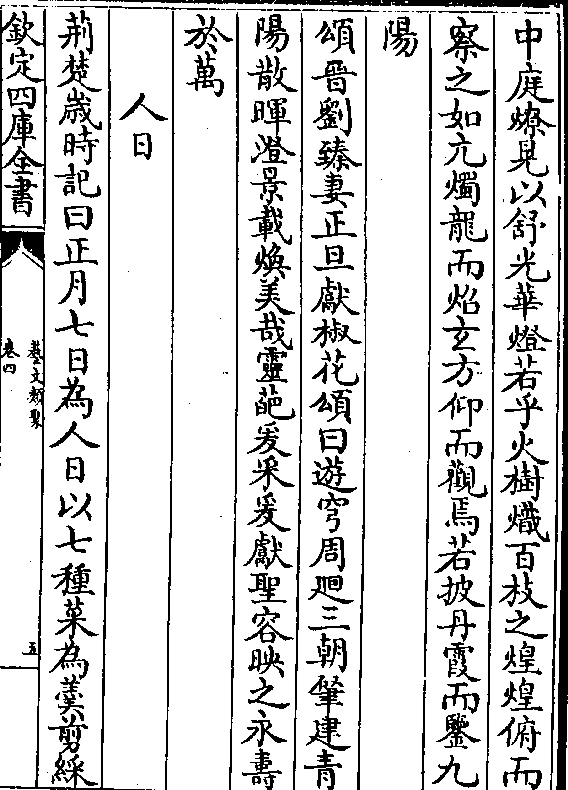 中庭燎晃以舒光華燈若乎火樹熾百枝之煌煌俯而
察之如亢燭龍而炤玄方仰而觀焉若披丹霞而鑒九
陽
頌晉劉臻妻正旦獻椒花頌曰遊穹周廻三朝肇建青
陽散暉澄景載煥美哉靈葩爰采爰獻聖容映之永壽
於萬
人日
荊楚歲時記曰正月七日為人日以七種菜為羹剪綵
欽定四庫全書
藝文類聚
卷四
五